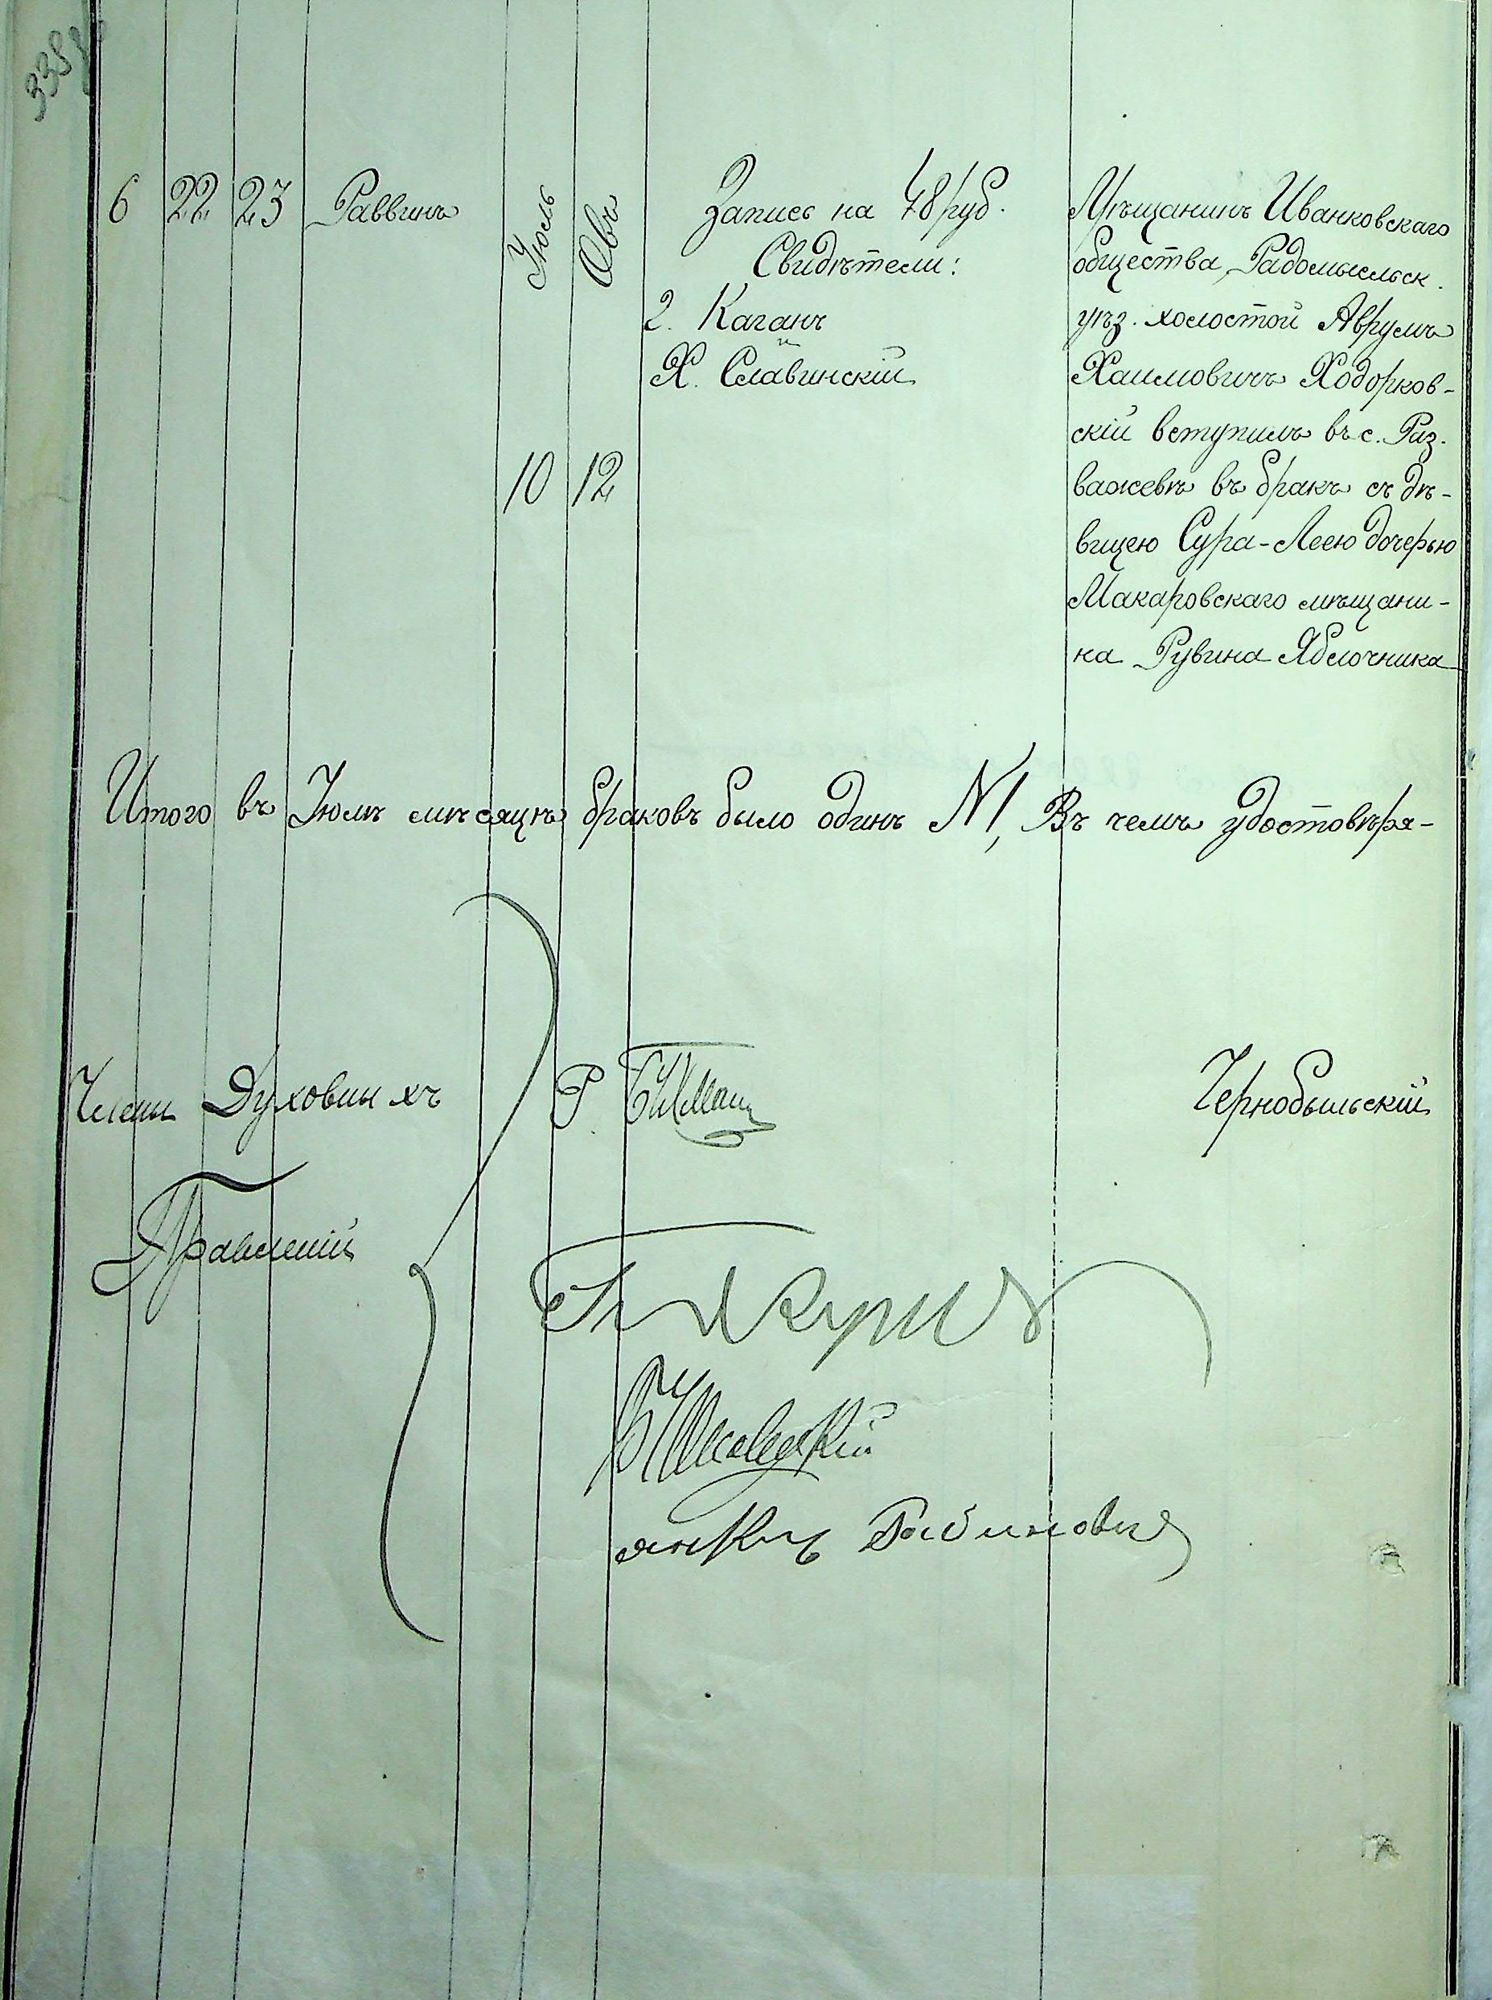 338
6 22 23 Раввинъ Іюль Овъ Запись на 48 руб.
Свидѣтели:
2. Каганъ
и
Х. Славинскій
10 12
Мѣщанинъ Иванковскаго
общества, Радомысльск.
уѣз. холостой Аврумъ
Хаимовичъ Ходорков-
скій вступилъ въ с. Раз-
важевѣ въ бракъ съ дѣ-
вицею Сура-Леею дочерью
Макаровскаго мѣщани-
на Рувина Яблочника
Итого въ Іюлѣ мѣсяцѣ браковъ было одинъ №1, Въ чемъ удостовѣря-
Члены Духовныхъ Р. Чернобыльскій
Правленій
Янкель Рабинович